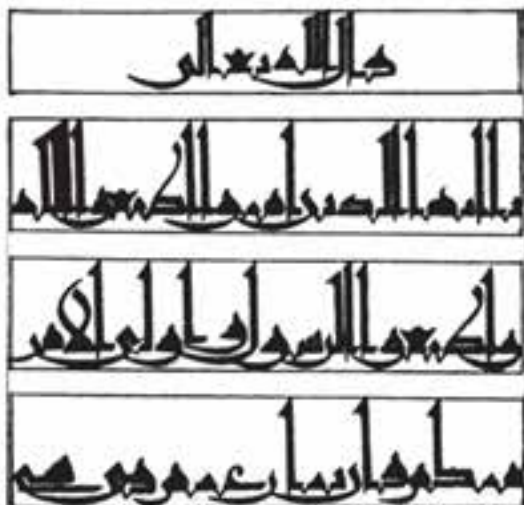 قال الله تعالى
يايها الذين امنوا اطيعوا الله
واطيعوا الرسول واولي الامر
منكم فان تنازعتم في شي